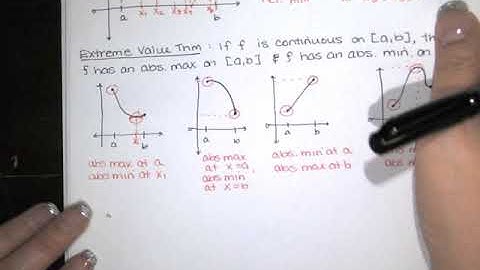 a x₁ x₂ x₃ x₄ b
Extreme Value Thm : If f is continuous on [a,b], th
f has an abs. max on [a,b] & f has an abs. min. on
a x₁ b
a b
a b
a
abs max at a
abs min at x₁
abs max
at x=a,
abs min
at x=b
abs. min at a
abs max at b
abs m
abs